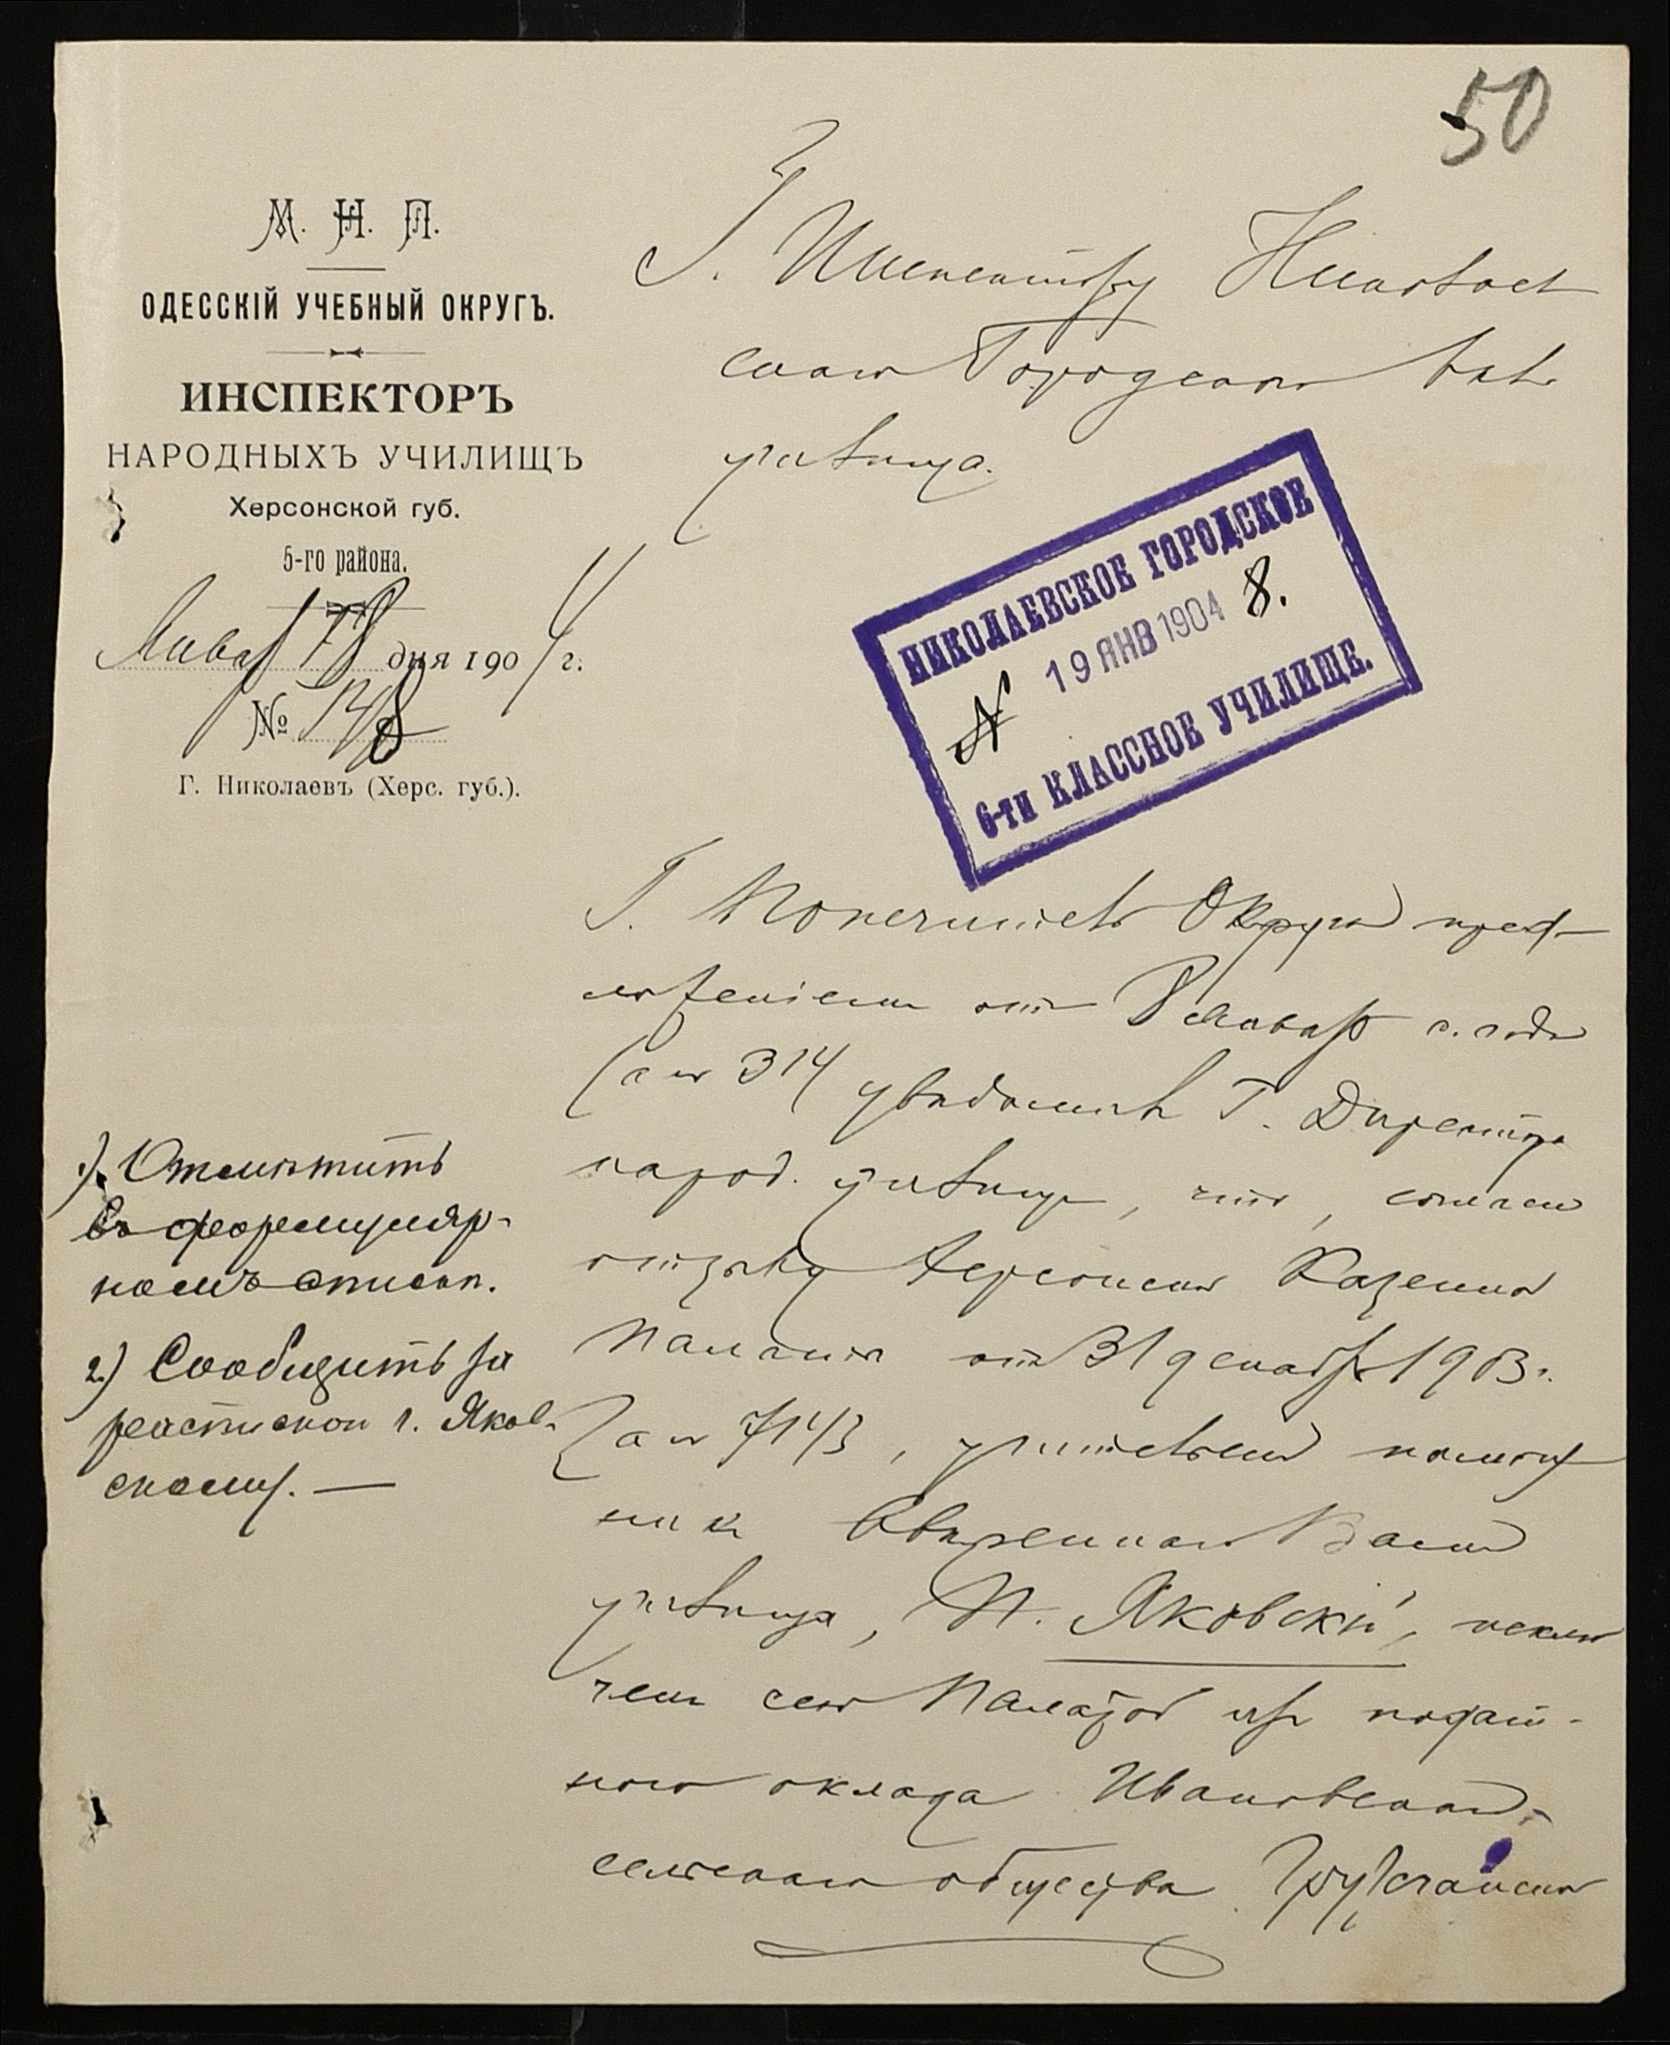 50
М. Н. П.
ОДЕССКІЙ УЧЕБНЫЙ ОКРУГЪ.
ИНСПЕКТОРЪ
НАРОДНЫХЪ УЧИЛИЩЪ
Херсонской губ.
5-го района.
Январ 18 дня 1904 г.
№ 148
Г. Николаевъ (Херс. губ.).
Г. Инспектору Николаев
скаго Городского
училища.
НИКОЛАЕВСКОЕ ГОРОДСКОЕ
19 ЯНВ 1904 8.
N
6-ТИ КЛАССНОЕ УЧИЛИЩЕ.
Г. Попечитель Округа пред-
ложеніемъ отъ 8 Января с. года
за № 314 увѣдомилъ Г. Директора
народ. училищъ, что, согласно
отзыву Херсонской Казенной
Палаты отъ 31 декабря 1903 г.
за № 7143, учительскій помощ
никъ ввѣреннаго Вамъ
училища, П. Яковскій, исклю
ченъ сею Палатой изъ подат-
ного оклада Ивановскаго
сельскаго общества
1) Отмѣтить
въ формуляр-
номъ списк.
2.) Сообщить за
распиской г. Яков-
скому. —